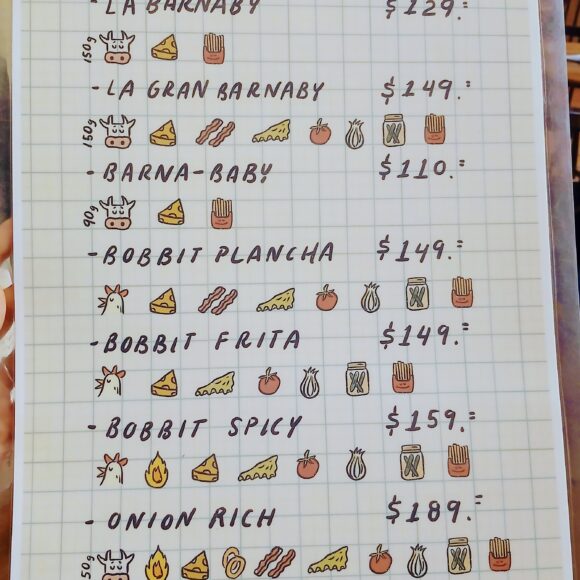 - LA BARNABY $129.=
150g
- LA GRAN BARNABY $149.=
150g
- BARNA-BABY $110.=
90g
- BOBBIT PLANCHA $149.=
- BOBBIT FRITA $149.=
- BOBBIT SPICY $159.=
- ONION RICH $189.=
50g